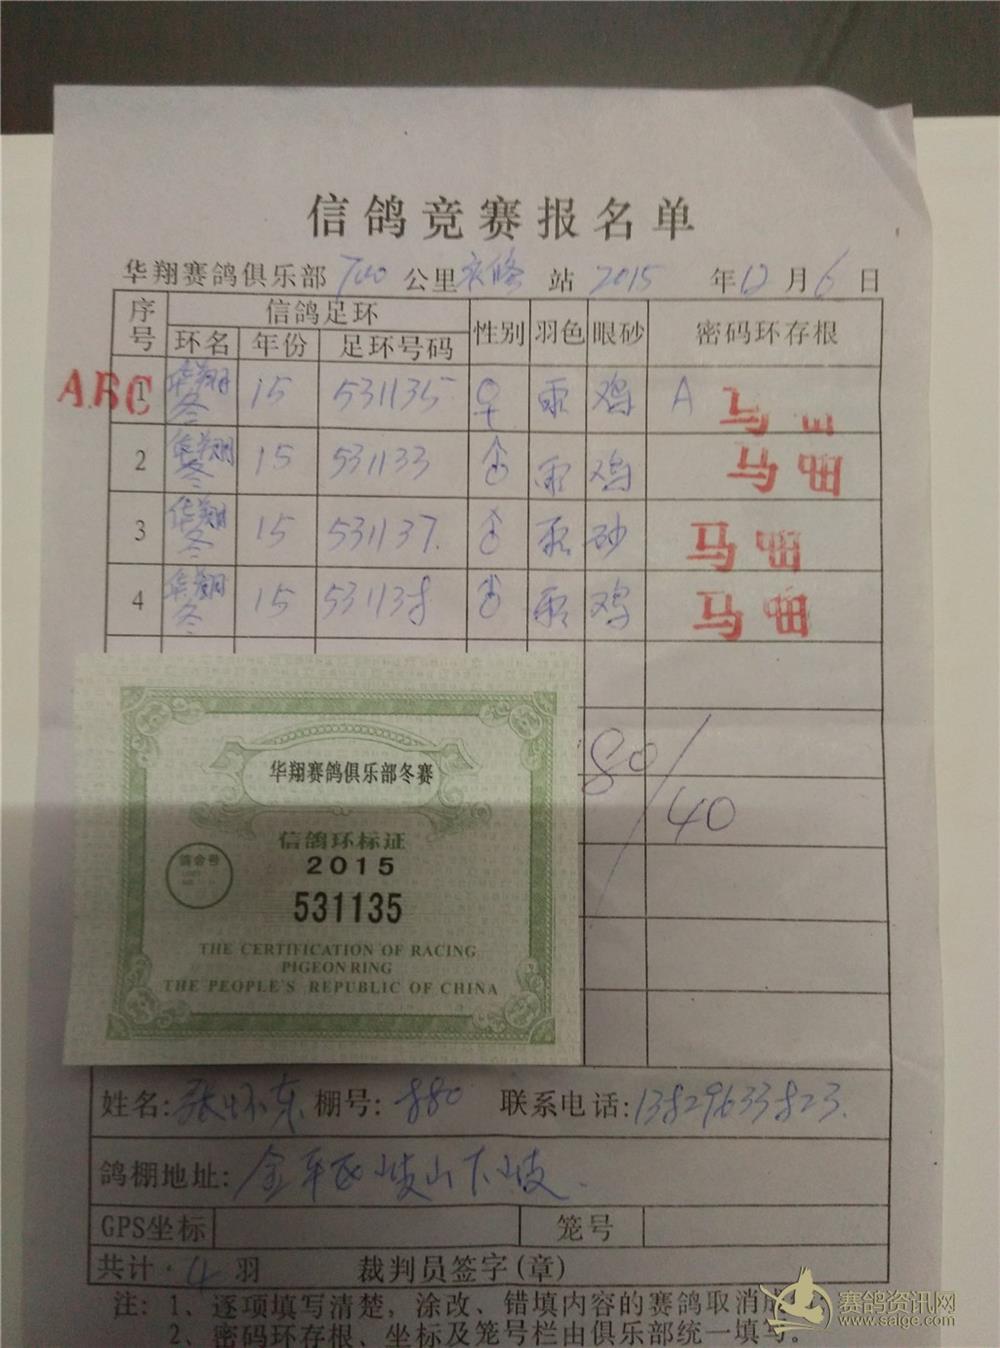 信鸽竞赛报名单
华翔赛鸽俱乐部 700 公里 站 2015 年 12 月 6 日
序号 信鸽足环 性别 羽色 眼砂 密码环存根
环名 年份 足环号码
ABC 1 华翔冬 15 531135 ♀ 雨 鸡 A 马
2 华翔冬 15 531133 雨 鸡 马
3 华翔冬 15 531137. 雨 砂 马
4 华翔冬 15 531138 雨 鸡 马
80/40
华翔赛鸽俱乐部冬赛
信鸽环标证
鸽会号
2015
531135
THE CERTIFICATION OF RACING
PIGEON RING
THE PEOPLE'S REPUBLIC OF CHINA
姓名: 张怀东 棚号: 880 联系电话: 13829633823.
鸽棚地址: 金平区岐山下岐.
GPS坐标 笼号
共计. 4 羽 裁判员签字(章)
注: 1、逐项填写清楚, 涂改、错填内容的赛鸽取消
2、密码环存根、坐标及笼号栏由俱乐部统一填写。
赛鸽资讯网
www.saige.com